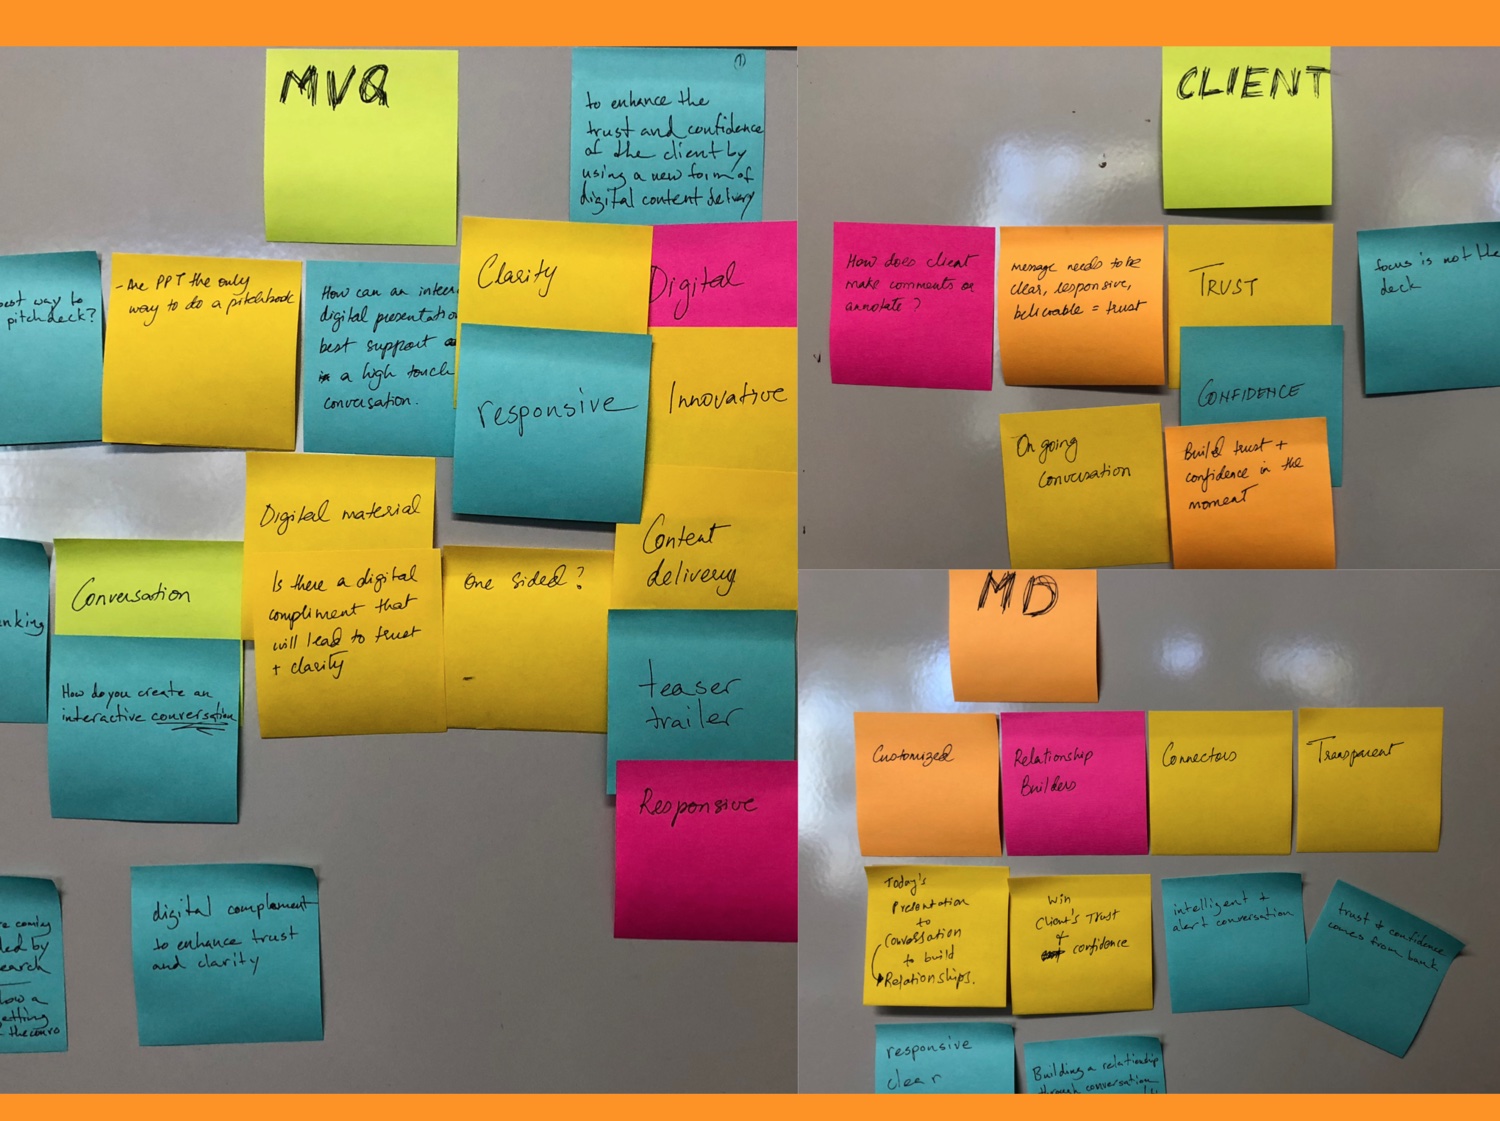 MVQ
to enhance the
trust and confidence
of the client by
using a new form of
digital content delivery
best way to
pitchdeck?
- Are PPT the only
way to do a pitchbook
How can an
digital
best support
a high touch
conversation.
Clarity
Digital
responsive
Innovative
Digital material
Content
delivery
Conversation
Is there a digital
compliment that
will lead to trust
+ clarity
One sided?
How do you create an
interactive conversation
teaser
trailer
Responsive
digital complement
to enhance trust
and clarity
coming
by
CLIENT
How does client
make comments or
annotate?
message needs to be
clear, responsive,
believable = trust
TRUST
focus is not the
deck
CONFIDENCE
On going
conversation
Build trust +
confidence in the
moment
MD
Customized
Relationship
Builders
Connectors
Transparent
Today's
Presentation
to
Conversation
to build
Relationships.
Win
Client's Trust
+
confidence
intelligent +
alert conversation
trust + confidence
comes from bank
responsive
clear
Building a relationship
through conversation